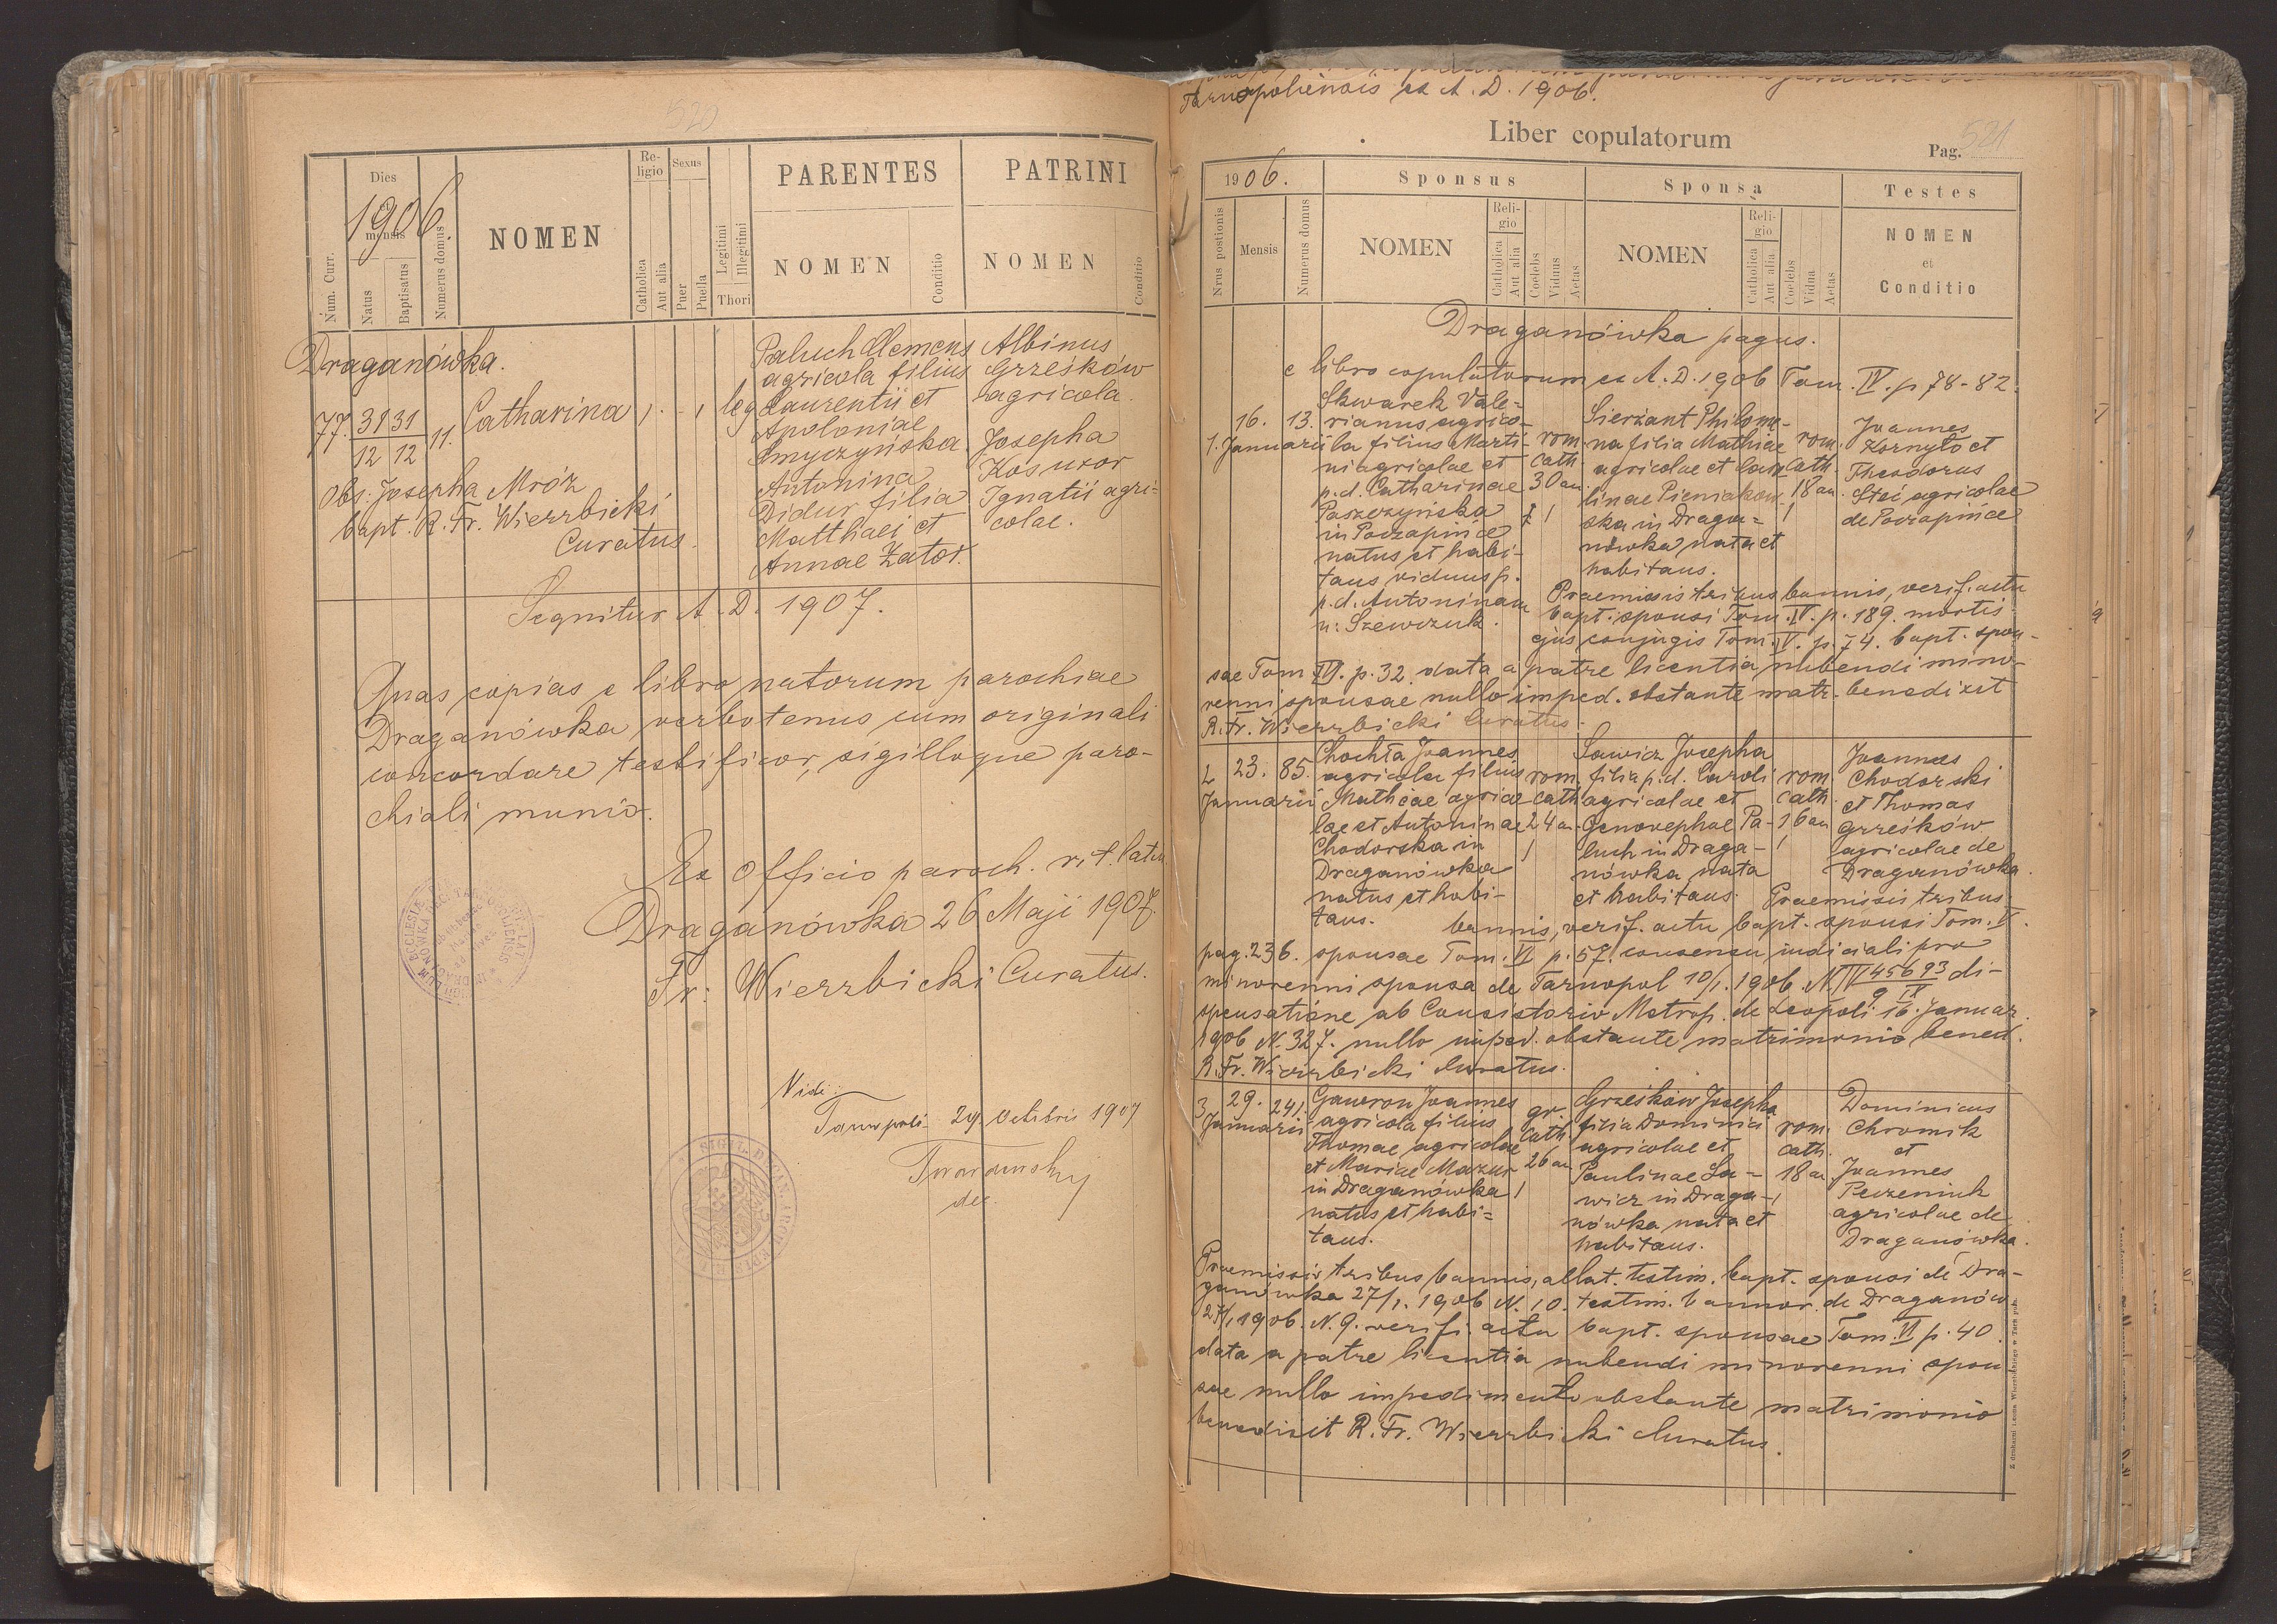 520
Dies
et
mensis
1906.
Num. Curr.
Natus
Baptisatus
Numerus domus
NOMEN
Re-
ligio
Catholica
Aut alia
Sexus
Puer
Puella
Legitimi
Illegitimi
Thori
PARENTES
NOMEN
Conditio
PATRINI
NOMEN
Conditio
Draganówka.
77. 31 31 11. Catharina 1. - 1 leg
12 12
Paluch Clemens
agricola filius
Laurentii et
Apoloniae
Smyczyńska
Antonina
Didur filia
Matthaei et
Annae Zator.
Albinus
Grześków
agricola.
Josepha
Kos uxor
Ignatii agri=
colae.
Obs. Josepha Mróz
bapt. R. Fr. Wierzbicki
Curatus.
Segnitur A. D. 1907.
Quas copias e libro natorum parochiae
Draganówka verbotenus cum originali
concordare testificor, sigilloque paro-
chiali munio.
Ex Officio paroch. rit. latin
Draganówka 26 Maji 1907.
Fr: Wierzbicki Curatus.
Vidi
Tarnopoli 29. Octobris 1907
dec.
Tarnopoliensis ex A. D. 1906.
Liber copulatorum
Pag. 521
1906.
Nrus postionis
Mensis
Numerus domus
Sponsus
NOMEN
Reli-
gio
Catholica
Aut alia
Coelebs
Viduus
Aetas
Sponsa
NOMEN
Reli-
gio
Catholica
Aut alia
Coelebs
Vidua
Aetas
Testes
NOMEN
et
Conditio
Draganówka pagus.
e libro copulatorum ex A. D. 1906 Tom. IV. p. 78-82.
1. 16. Januarii 13.
Skwarek Vale-
rianus agrico-
la filius Marti-
ni agricolae et
p. d. Catharinae
Paszczyńska
in Poczapińce
natus et habi-
tans viduus p.
p. d. Antoninam
n: Szewczuk.
rom.
cath.
30 an.
1
Sierżant Philome-
na filia Mathiae
agricolae et Caro-
linae Pieniakow-
ska in Draga=
nówka nata et
habitans.
rom.
cath.
18 an.
1
Joannes
Kornyło et
Theodorus
Stei agricolae
de Poczapińce
Praemissis tribus bannis, verif. actu
bapt. sponsi Tom. IV. p. 189. mortis
ejus conjugis Tom. IV. p. 74. bapt. spon-
sae Tom. VI. p. 32. data a patre licentia nubendi mino-
renni sponsae nullo imped. obstante matr. benedixit
R. Fr. Wierzbicki Curatus.
2 23. Januarii 85.
Chochła Joannes
agricola filius
Mathiae agrico-
lae et Antoninae
Chodorska in
Draganówka
natus et habi-
tans.
rom.
cath
24 an.
1
Sawicz Josepha
filia p. d. Caroli
agricolae et
Genovephae Pa-
luch in Draga-
nówka nata
et habitans.
rom.
cath.
16 an
1
Joannes
Chodorski
et Thomas
Grześków
agricolae de
Draganówka.
Praemissis tribus
bannis, verif. actu bapt. sponsi Tom. V.
pag. 236. sponsae Tom. VI p. 57. consensu judiciali pro
minorenni sponsa de Tarnopol 10/1. 1906. N. IV 456 93/9 IX di-
spensatione ab Consistorio Metrop. de Leopoli 16. Januar.
1906 N. 327. nullo imped. obstante matrimonio bened.
R. Fr. Wierzbicki Curatus.
3 29. Januarii 241.
Gawron Joannes
agricola filius
Thomae agricolae
et Mariae Mazur
in Draganówka
natus et habi=
tans.
gr.
cath
26 an
1
Grześków Josepha
filia Dominici
agricolae et
Paulinae Sa-
wicz in Draga-
nówka nata et
habitans.
rom.
cath.
18 an
1
Dominicus
Chromik
et
Joannes
Peczeniuk
agricolae de
Draganówka.
Praemissis tribus bannis, allat. testim. bapt. sponsi de Dra-
ganówka 27/1. 1906 N. 10. testim. bannor. de Draganów
27/1 1906. N. 9. verifi. actu bapt. sponsae Tom. VI p. 40.
data a patre licentia nubendi minorenni spon
sae nullo impedimento obstante matrimonio
benedixit R. Fr. Wierzbicki Curatus.